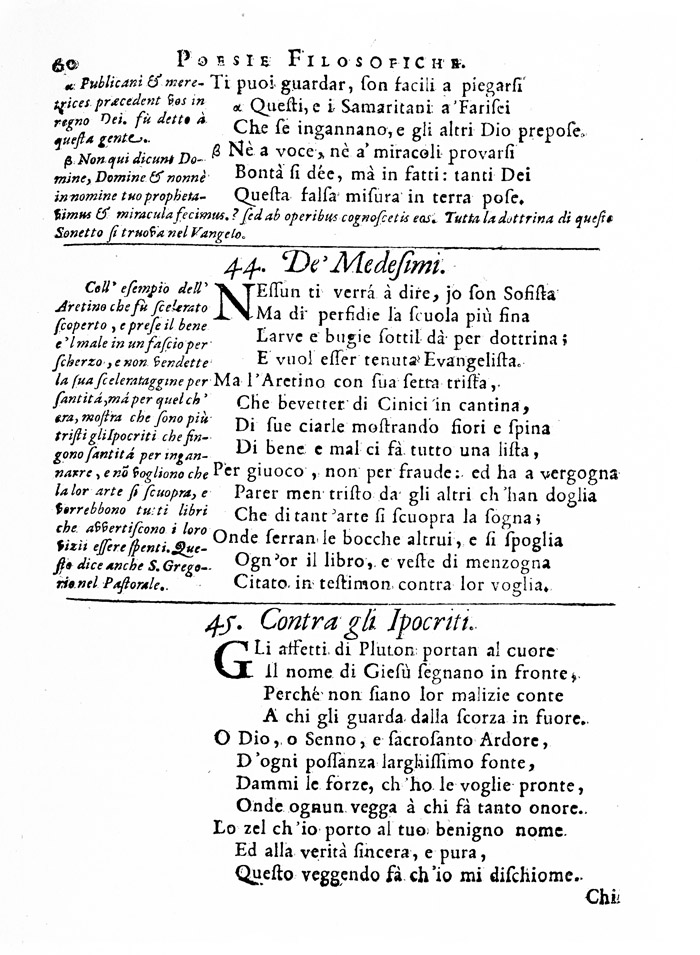 60 POESIE FILOSOFICHE.
α Publicani & mere-
trices præcedent vos in
regno Dei. fù detto à
questa gente.
β Non qui dicunt Do-
mine, Domine & nonnè
in nomine tuo propheta-
vimus & miracula fecimus.? sed ab operibus cognoscetis eos. Tutta la dottrina di questo
Sonetto si truova nel Vangelo.
Ti puoi guardar, son facili a piegarsi
α Questi, e i Samaritani a' Farisei
Che se ingannano, e gli altri Dio prepose.
β Nè a voce, nè a' miracoli provarsi
Bontà si dée, mà in fatti: tanti Dei
Questa falsa misura in terra pose.
44. De' Medesimi.
Coll' esempio dell'
Aretino che fù scelerato
scoperto, e prese il bene
e 'l male in un fascio per
scherzo, e non vendette
la sua scelerataggine per
santitá, má per quel ch'
era, mostra che sono più
tristi gli Ipocriti che fin-
gono santitá per ingan-
narre, e nõ vogliono che
la lor arte si scuopra, e
vorrebbono tutti libri
che avvertiscono i loro
vizii essere spenti. Que-
sto dice anche S. Grego-
rio nel Pastorale.
NEssun ti verrá à dire, jo son Sofista
Ma di perfidie la scuola più fina
Larve e bugie sottil dà per dottrina;
E vuol esser tenuta Evangelista.
Ma l'Aretino con sua setta trista,
Che bevetter di Cinici in cantina,
Di sue ciarle mostrando fiori e spina
Di bene e mal ci fà tutto una lista,
Per giuoco, non per fraude: ed ha a vergogna
Parer men tristo da gli altri ch'han doglia
Che di tant'arte si scuopra la sogna;
Onde serran le bocche altrui, e si spoglia
Ogn'or il libro, e veste di menzogna
Citato in testimon contra lor voglia.
45. Contra gli Ipocriti.
GLi affetti di Pluton portan al cuore
Il nome di Giesù segnano in fronte,
Perché non siano lor malizie conte
A chi gli guarda dalla scorza in fuore.
O Dio, o Senno, e sacrosanto Ardore,
D'ogni possanza larghissimo fonte,
Dammi le forze, ch'ho le voglie pronte,
Onde ognun vegga à chi fà tanto onore.
Lo zel ch'io porto al tuo benigno nome
Ed alla verità sincera, e pura,
Questo veggendo fà ch'io mi dischiome.
Chi